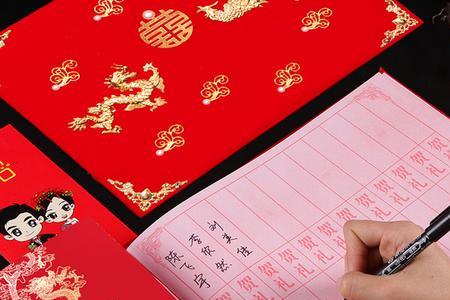 囍
陈飞宇
李欣然
刘美佳
贺礼
贺礼
贺礼
贺礼
贺礼
贺礼
贺礼
贺礼
贺礼
贺礼